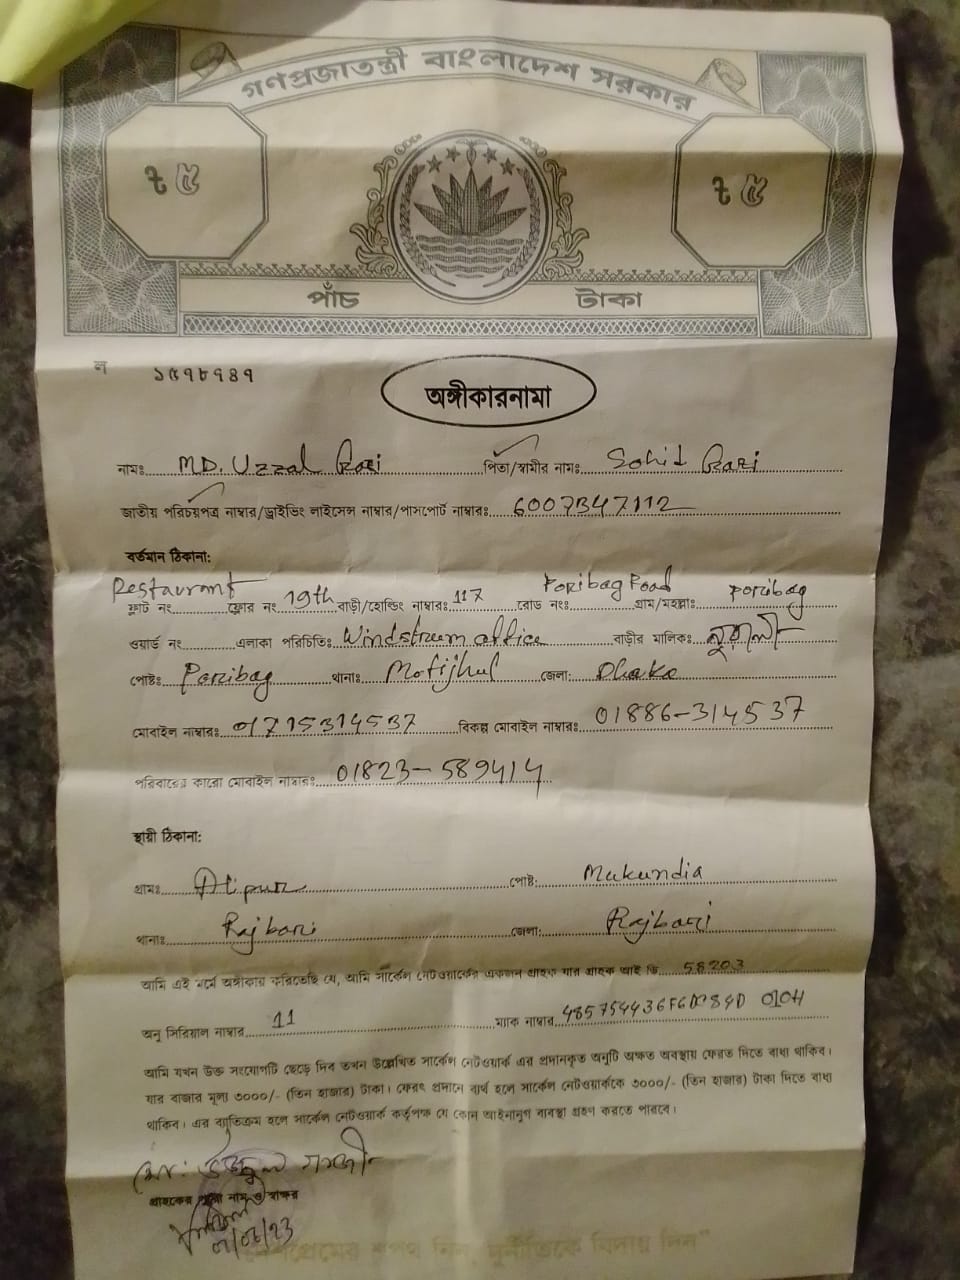 গণপ্রজাতন্ত্রী বাংলাদেশ সরকার
৳ ৫ ৳ ৫
পাঁচ টাকা
ল ১৫৭৮৭৪৭
অঙ্গীকারনামা
নামঃ MD. Uzzal Gazi পিতা/স্বামীর নামঃ Sohid Gazi
জাতীয় পরিচয়পত্র নাম্বার/ড্রাইভিং লাইসেন্স নাম্বার/পাসপোর্ট নাম্বারঃ 6007347112
বর্তমান ঠিকানা:
Restaurant 19th 117 Poribag Road Poribag
ফ্লাট নং ফ্লোর নং বাড়ী/হোল্ডিং নাম্বারঃ রোড নংঃ গ্রাম/মহল্লাঃ
ওয়ার্ড নং এলাকা পরিচিতিঃ Windstreem office বাড়ীর মালিকঃ
পোষ্টঃ Poribag থানাঃ Motijhul জেলা: Dhaka
মোবাইল নাম্বারঃ 01715314537 বিকল্প মোবাইল নাম্বারঃ 01886-314537
পরিবারের কারো মোবাইল নাম্বারঃ 01823-589414
স্থায়ী ঠিকানা:
গ্রামঃ Alipur পোষ্ট: Mukundia
থানাঃ Rajbari জেলা: Rajbari
আমি এই মর্মে অঙ্গীকার করিতেছি যে, আমি সার্কেল নেটওয়ার্কের একজন গ্রাহক যার গ্রাহক আই ডি 58203
অনু সিরিয়াল নাম্বার 11 ম্যাক নাম্বার
আমি যখন উক্ত সংযোগটি ছেড়ে দিব তখন উল্লেখিত সার্কেল নেটওয়ার্ক এর প্রদানকৃত অনুটি অক্ষত অবস্থায় ফেরত দিতে বাধ্য থাকিব।
যার বাজার মূল্য ৩০০০/- (তিন হাজার) টাকা। ফেরৎ প্রদানে ব্যর্থ হলে সার্কেল নেটওয়ার্ককে ৩০০০/- (তিন হাজার) টাকা দিতে বাধ্য
থাকিব। এর ব্যতিক্রম হলে সার্কেল নেটওয়ার্ক কর্তৃপক্ষ যে কোন আইনানুগ ব্যবস্থা গ্রহণ করতে পারবে।
মো: উজ্জল গাজী
গ্রাহকের পুরো নাম ও স্বাক্ষর
"দেশপ্রেমের শপথ নিন, দুর্নীতিকে বিদায় দিন"